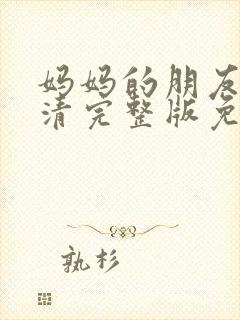 妈妈的朋友
清完整版免
孰杉